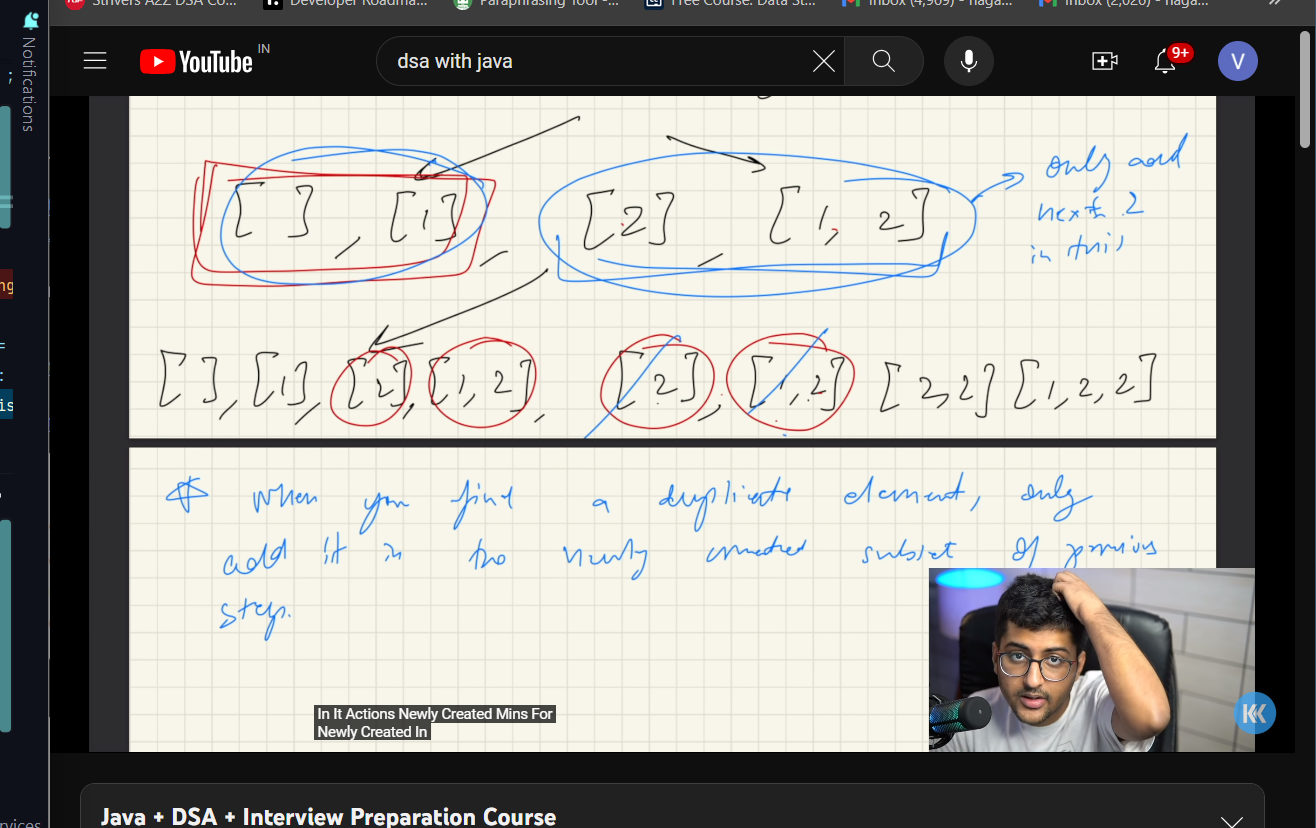 Strivers A2Z DSA Co...
Developer Roadma...
Paraphrasing Tool -...
Free Course: Data St...
Inbox (4,969) - naga...
Inbox (2,026) - naga...
Notifications
YouTube IN
dsa with java
9+
V
[ ] , [1] , [2] , [1, 2]
only add
next 2
in this
[ ], [1], [2], [1, 2], [2], [1, 2] [2,2] [1,2,2]
When you find a duplicate element, only
add it in the newly created subset of previous
step.
In It Actions Newly Created Mins For
Newly Created In
KK
Java + DSA + Interview Preparation Course